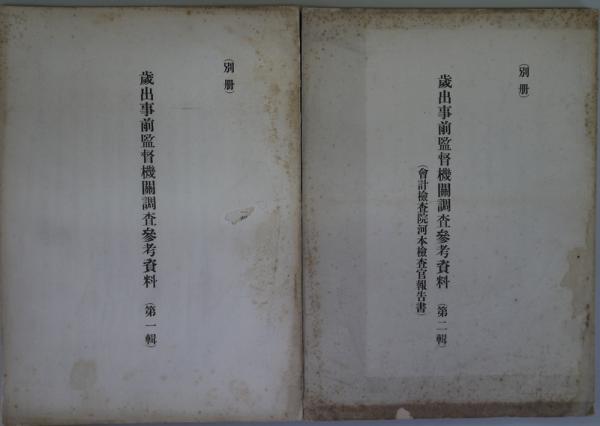 (別册)
歲出事前監督機關調査參考資料 (第一輯)
(別册)
歲出事前監督機關調査參考資料 (第二輯)
(會計檢査院河本檢査官報告書)